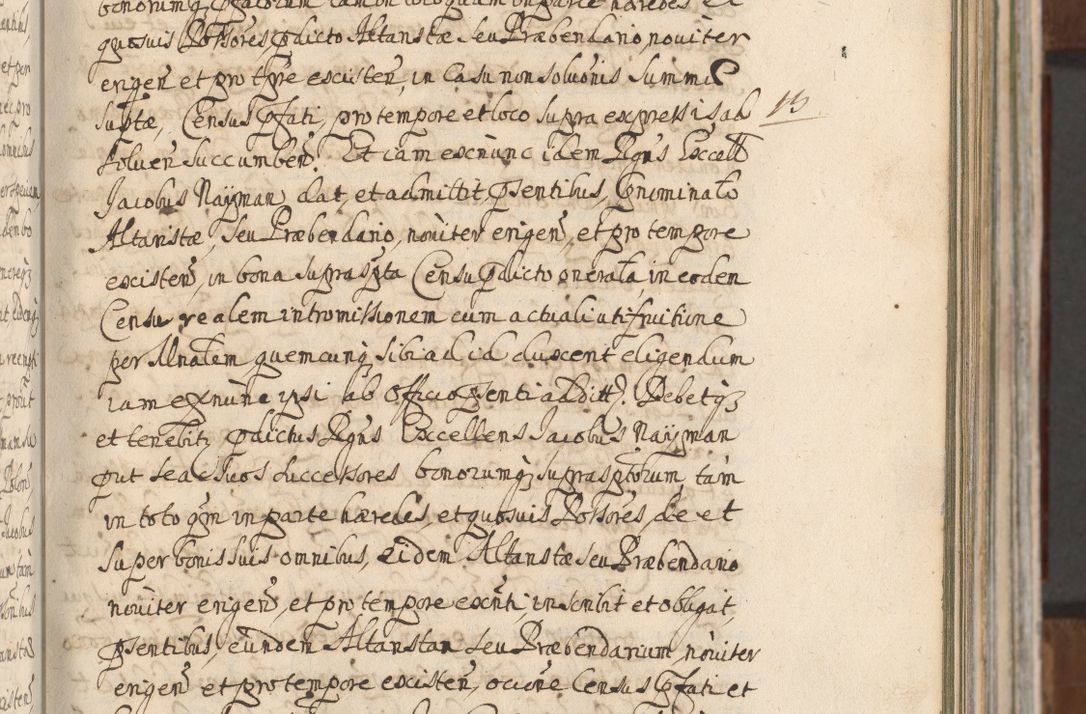 bonorumq; pfatorum tam in toto quam in parte hæredes et
quosuis Possores pdicto Altaristæ seu Præbendario nouiter
erigen et pro tpre existen, in Casu non soluõnis summæ
suptæ, Census pfati, pro tempore et loco supra expressis ab
soluen succumben. Et iam exnunc idem Rgñs Excell
Jacobus Nayman dat, et admittit, psentibus, pnominato
Altaristæ, seu Præbendario, nouiter erigen, et pro tempore
existen, in bona suprascpta Censu pdicto onerata, in eoden
Censu realem intromissionem cum actuali utifruitione
per Mnalem quemcunq; sibi ad id duxerit eligendum
iam exnunc ipsi ab Officio psenti addittꝫ. Debetq;
et tenebitꝫ pdictus Rgñs Excellens Jacobus Nayman
put se ac suos successores bonorumq; suprascptorum tam
in toto qm in parte hæredes, et quosuis Possores, de et
super bonis suis omnibus, Eidem Altaristæ seu Præbendario
nouiter erigen, et pro tempore exñti, inscribit et obligat,
psentibus, eundem Altaristam seu Præbendarium, nouiter
erigen et pro tempore existen, ocione Census pfati et